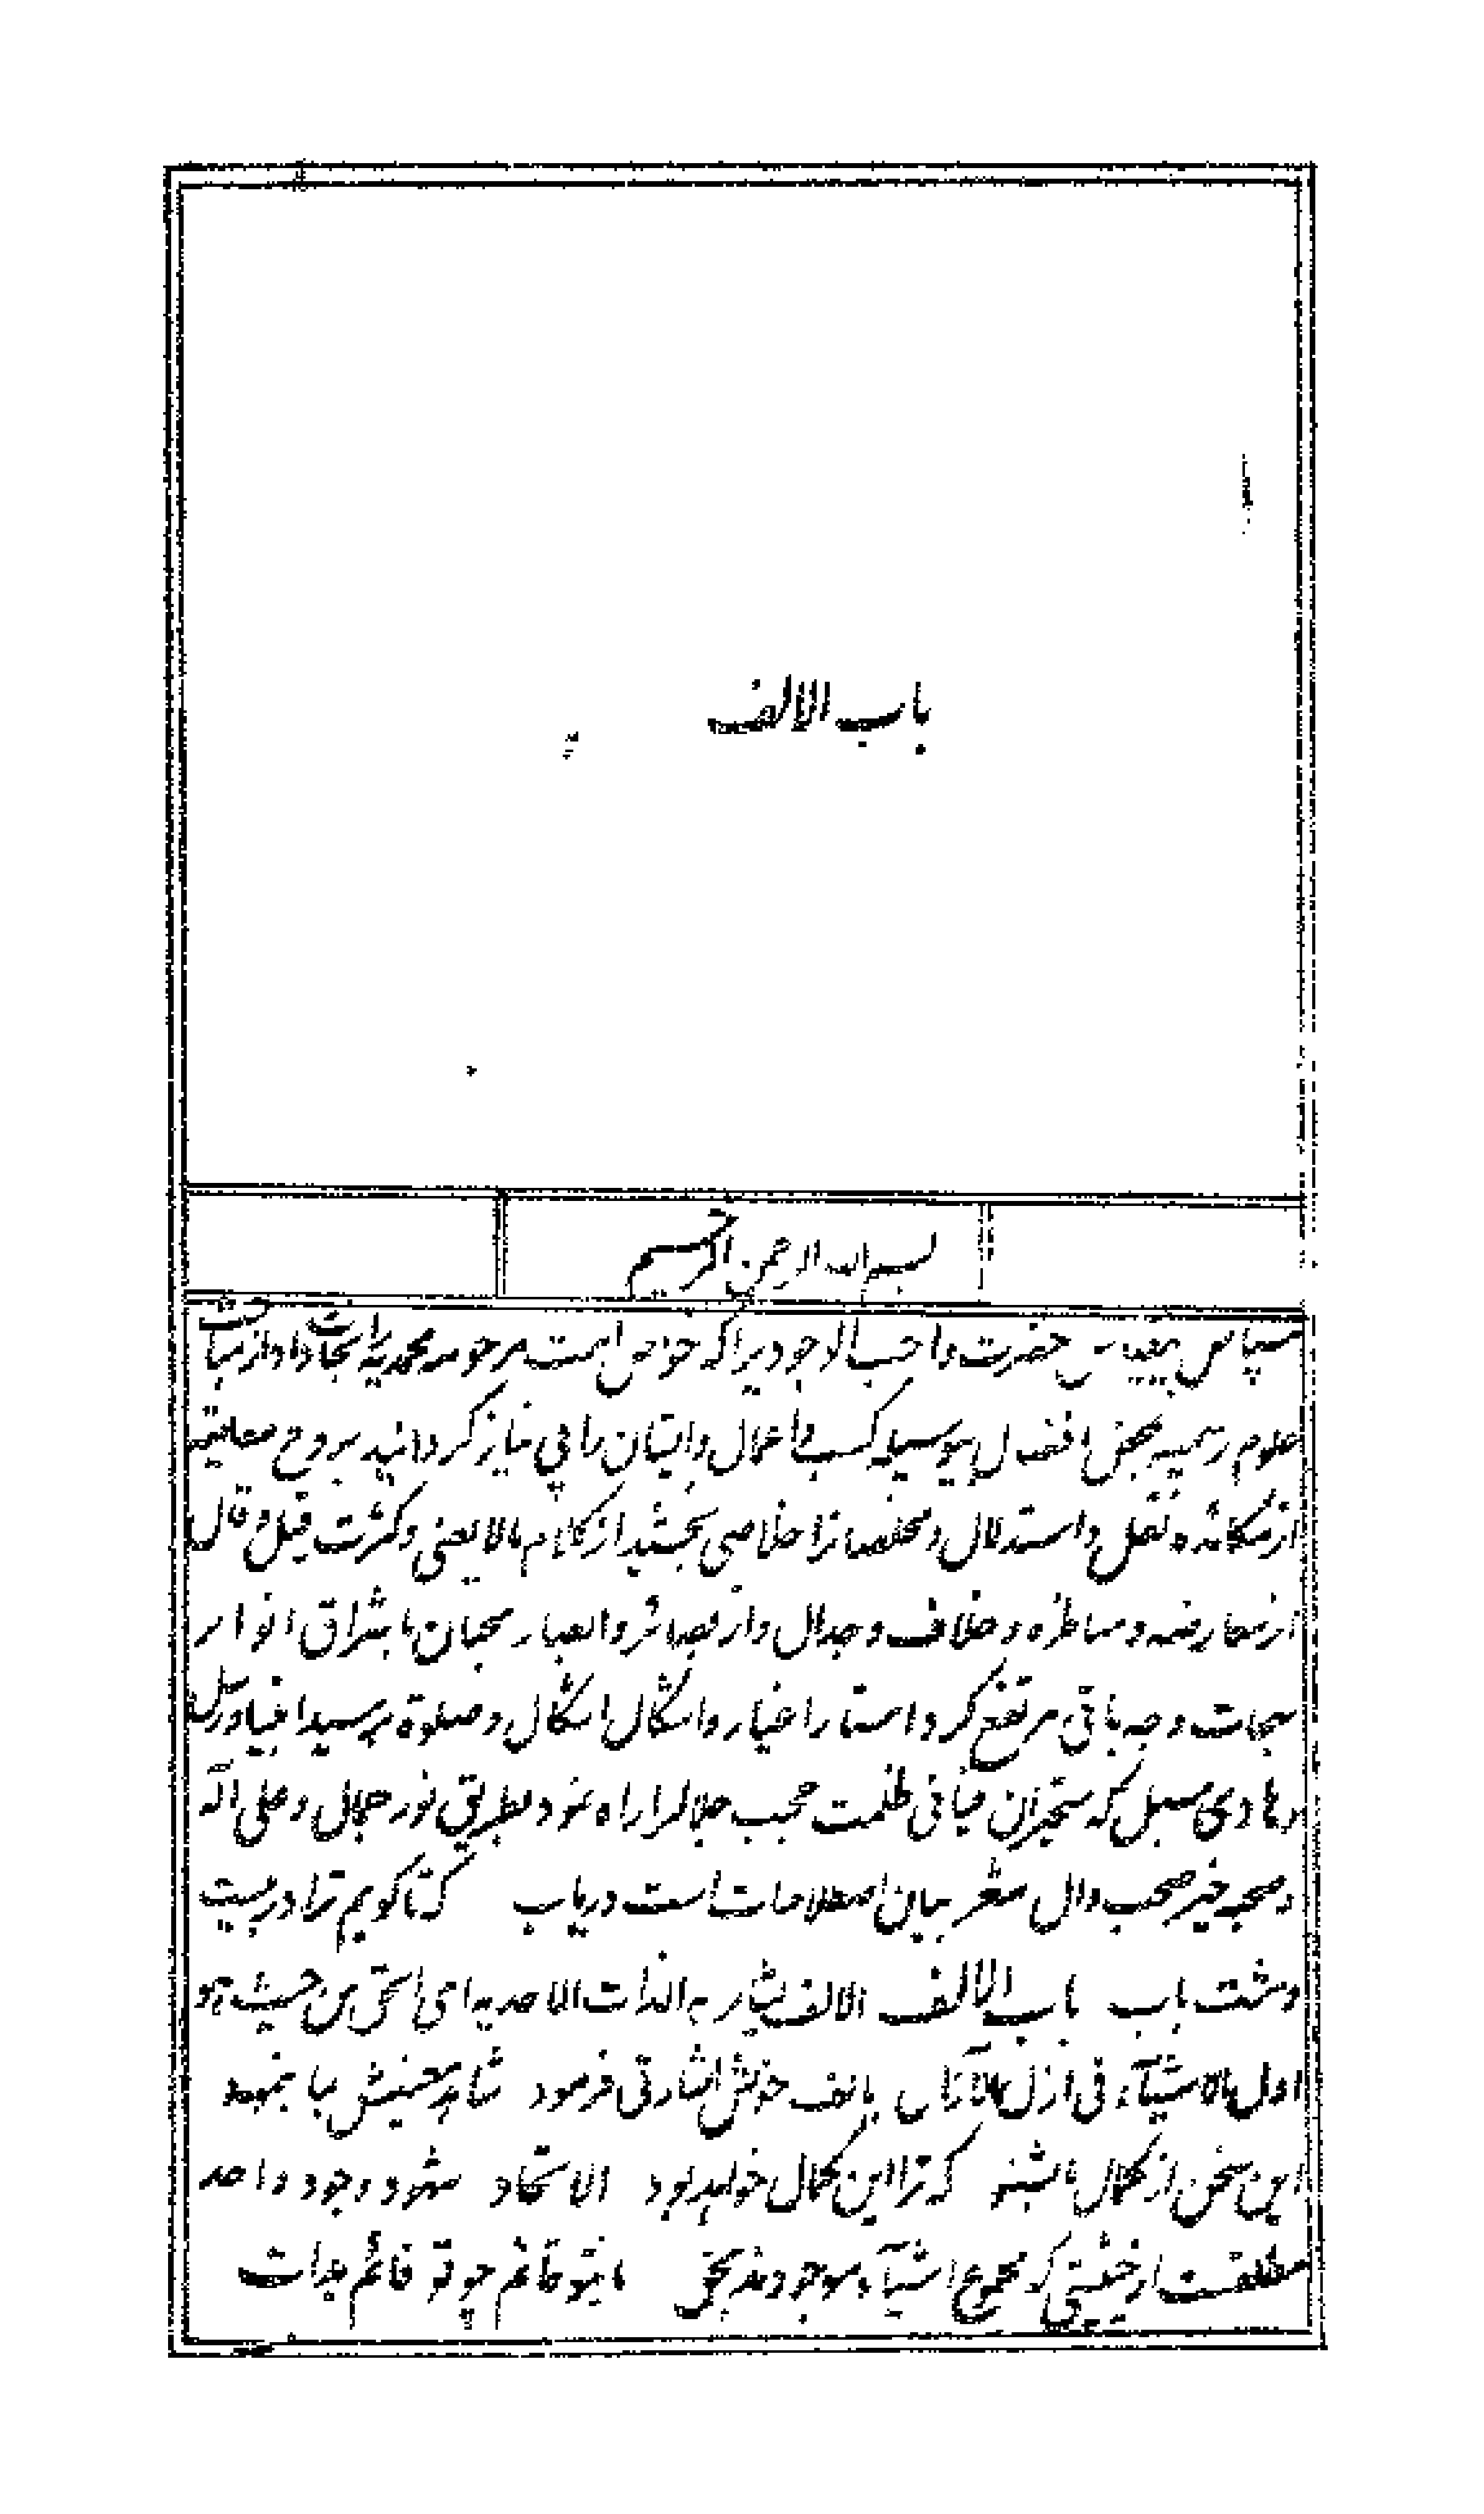 باب الالف
بسم الله الرحمن الرحیم
سپاس بیقیاس حضرت واجب الوجودیرا که خواص امت مرحومه محمدیه را نجات داد از مباحث
علوم رسمیه بمحض افضال بیوسیله کسب و اعمال و ایشان را بی نیاز کردانید بروح معاینه
از مکابده نقل و استدلال و مخلصانرا خلاصی بخشید از کلام مالا یعنی و کثرت قیل و قال
از معارضه و مناظره و خلاف و جدال و از بصائر و ابصار محبان باشراق انوار
سبحات وجه باقی مرتفع کرد استار اغیار و اشکال اشکال و صلوة بر سید انبیا و رسل
و هادی سبل که متحیران فیافی ظلمت حجب جلالرا راه نمود بطریق نور جمال و علی اله
و صحبه خیر صحب و ال شعر بیان اصطلاحات است دریاب که تا کویم ترا در بیست
و هشت باب باب الالف الالف یشار به الذات الاحدیه ای الحق من حیث هو
اول الاشیآء فی ازل الآزال بالف خویش اشارتی فرمود شاهد حسنش بما بنمود
این سخن از کمال ما بشنو که ترا این کمال خواهد بود الاتحاد شهود وجود واحد
مطلقست از حیثیتی که مجموع اشیآء موجودند بحق ما بتو قائم چو تو قائم بذات